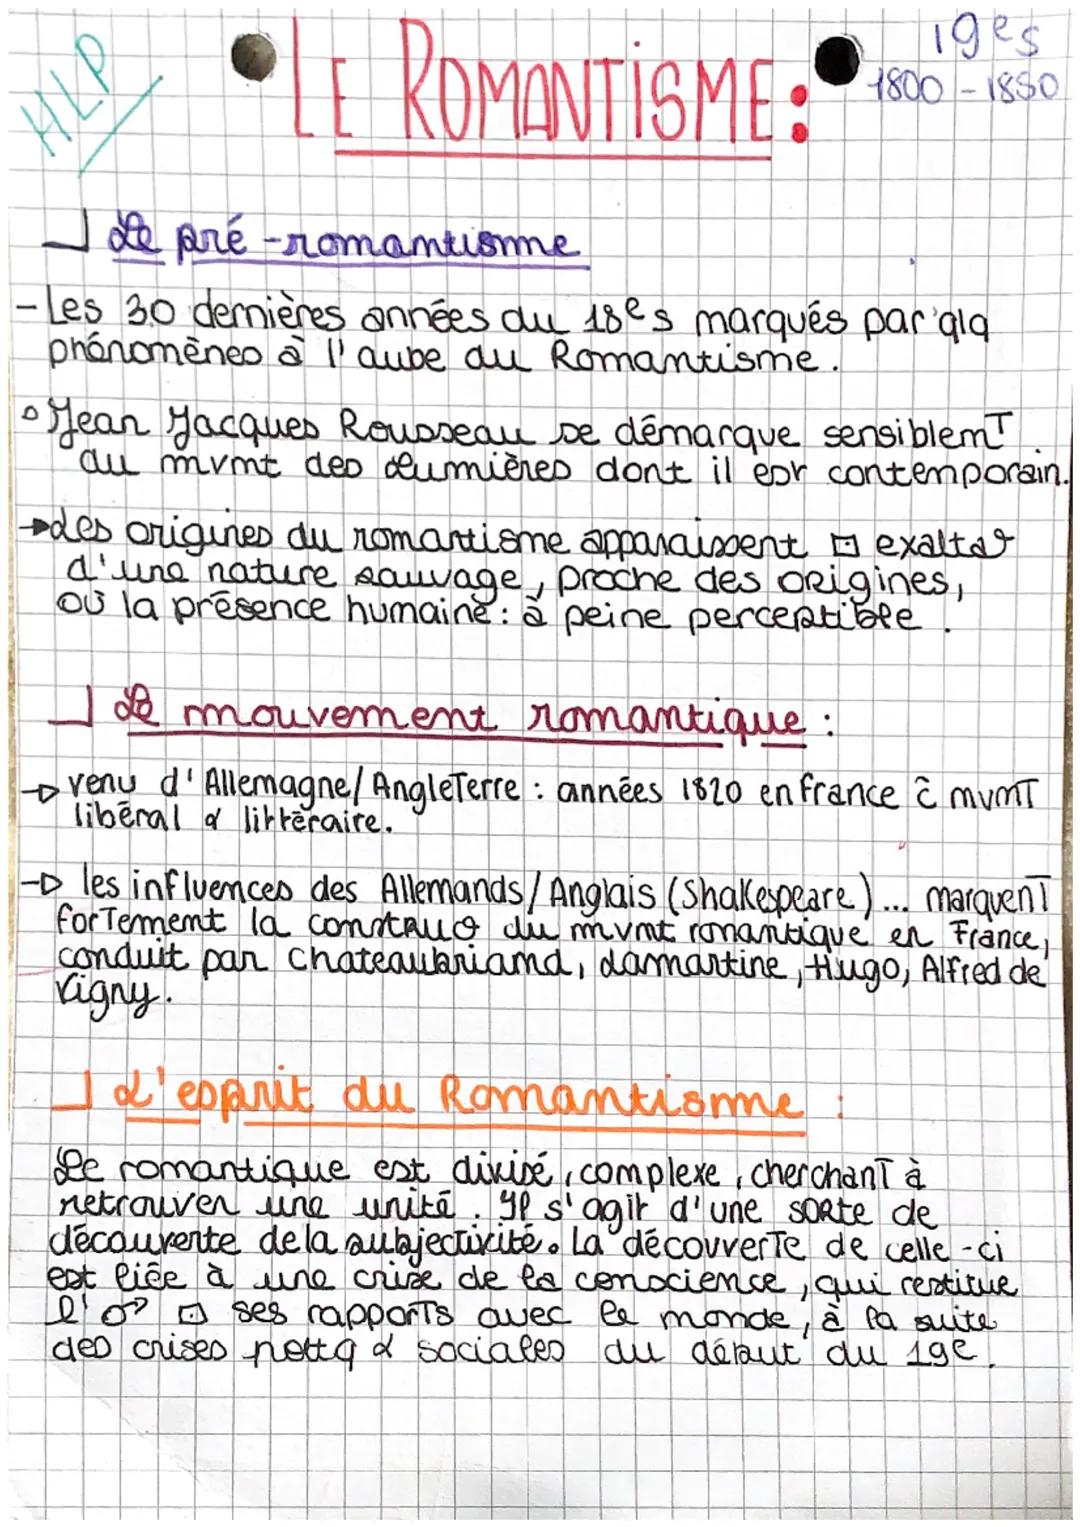 HLP
LE ROMANTISME :
19es
1800 - 1850
Le pré-romantisme
- Les 30 dernières années du 18es marqués par qlq
phénomènes à l'aube du Romantisme.
Jean Jacques Rousseau se démarque sensiblemT
du mvmt des Lumières dont il est contemporain.
→ Les origines du romantisme apparaissent □ exalta°
d'une nature sauvage, proche des origines,
où la présence humaine : à peine perceptible.
Le mouvement romantique :
→ venu d'Allemagne/Angleterre : années 1820 en france c̄ mvmT
libéral & littéraire.
→ les influences des Allemands/Anglais (Shakespeare)... marquenT
forTement la construc° du mvmt romantique en France,
conduit par Chateaubriand, Lamartine, Hugo, Alfred de
Vigny.
L'esprit du Romantisme :
Le romantique est divisé, complexe, cherchanT à
retrouver une unité. Il s'agit d'une sorte de
découverte de la subjectivité. La découverTe de celle-ci
est liée à une crise de la conscience, qui restitue
l' □ ses rapporTs avec le monde, à la suite
des crises & sociales du début du 19e.